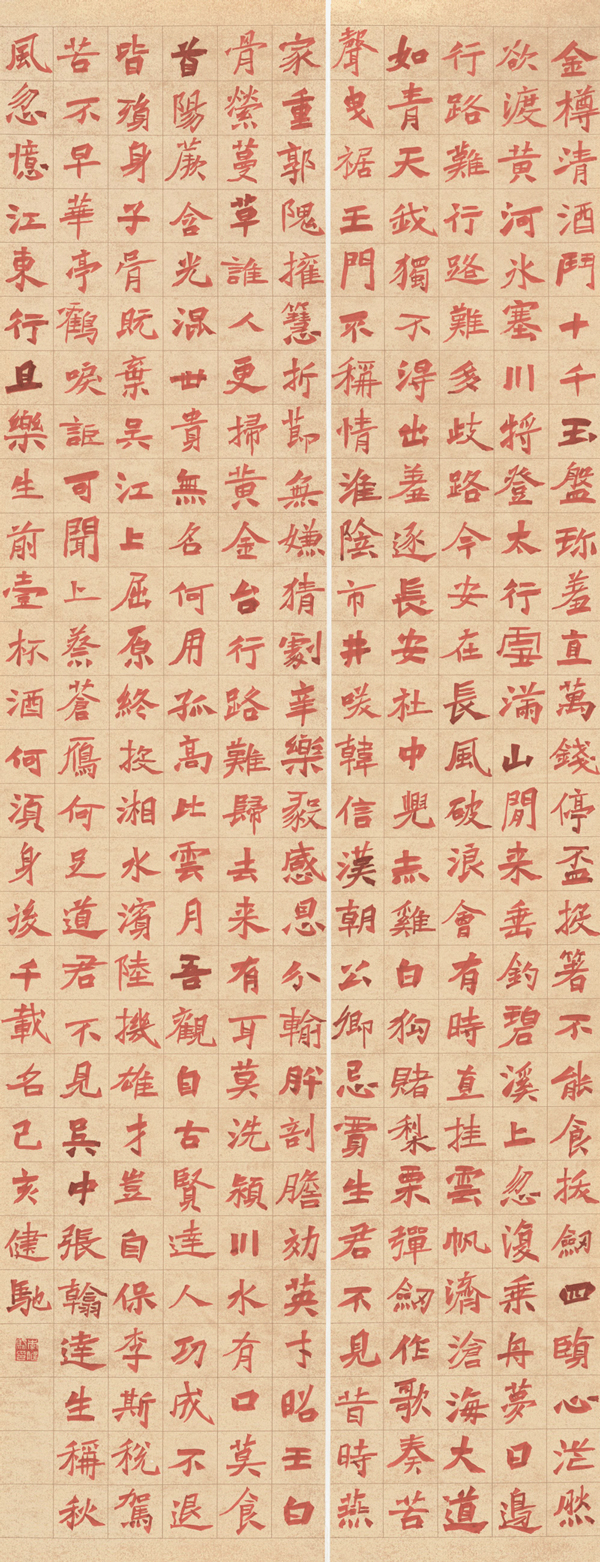 金樽清酒鬥十千玉盤珎羞直萬錢停盃投箸不能食拔劒四顧心茫然
欲渡黃河氷塞川將登太行雪滿山閒来垂釣碧溪上忽復乘舟夢日邊
行路難行路難多歧路今安在長風破浪會有時直挂雲帆濟滄海大道
如青天我獨不得出羞逐長安社中兒赤雞白狗賭梨栗彈劒作歌奏苦
聲曳裾王門不稱情淮陰市井咲韓信漢朝公卿忌賈生君不見昔時燕
家重郭隗擁篲折節無嫌猜劇辛樂毅感恩分輸肝剖膽効英才昭王白
骨縈蔓草誰人更掃黃金台行路難歸去来有耳莫洗潁川水有口莫食
首陽蕨含光混世貴無名何用孤高比雲月吾觀自古賢達人功成不退
皆殞身子胥既棄吳江上屈原終投湘水濱陸機雄才豈自保李斯稅駕
苦不早華亭鶴唳詎可聞上蔡蒼鴈何足道君不見吳中張翰達生稱秋
風忽憶江東行且樂生前壹杯酒何須身後千載名己亥健馳